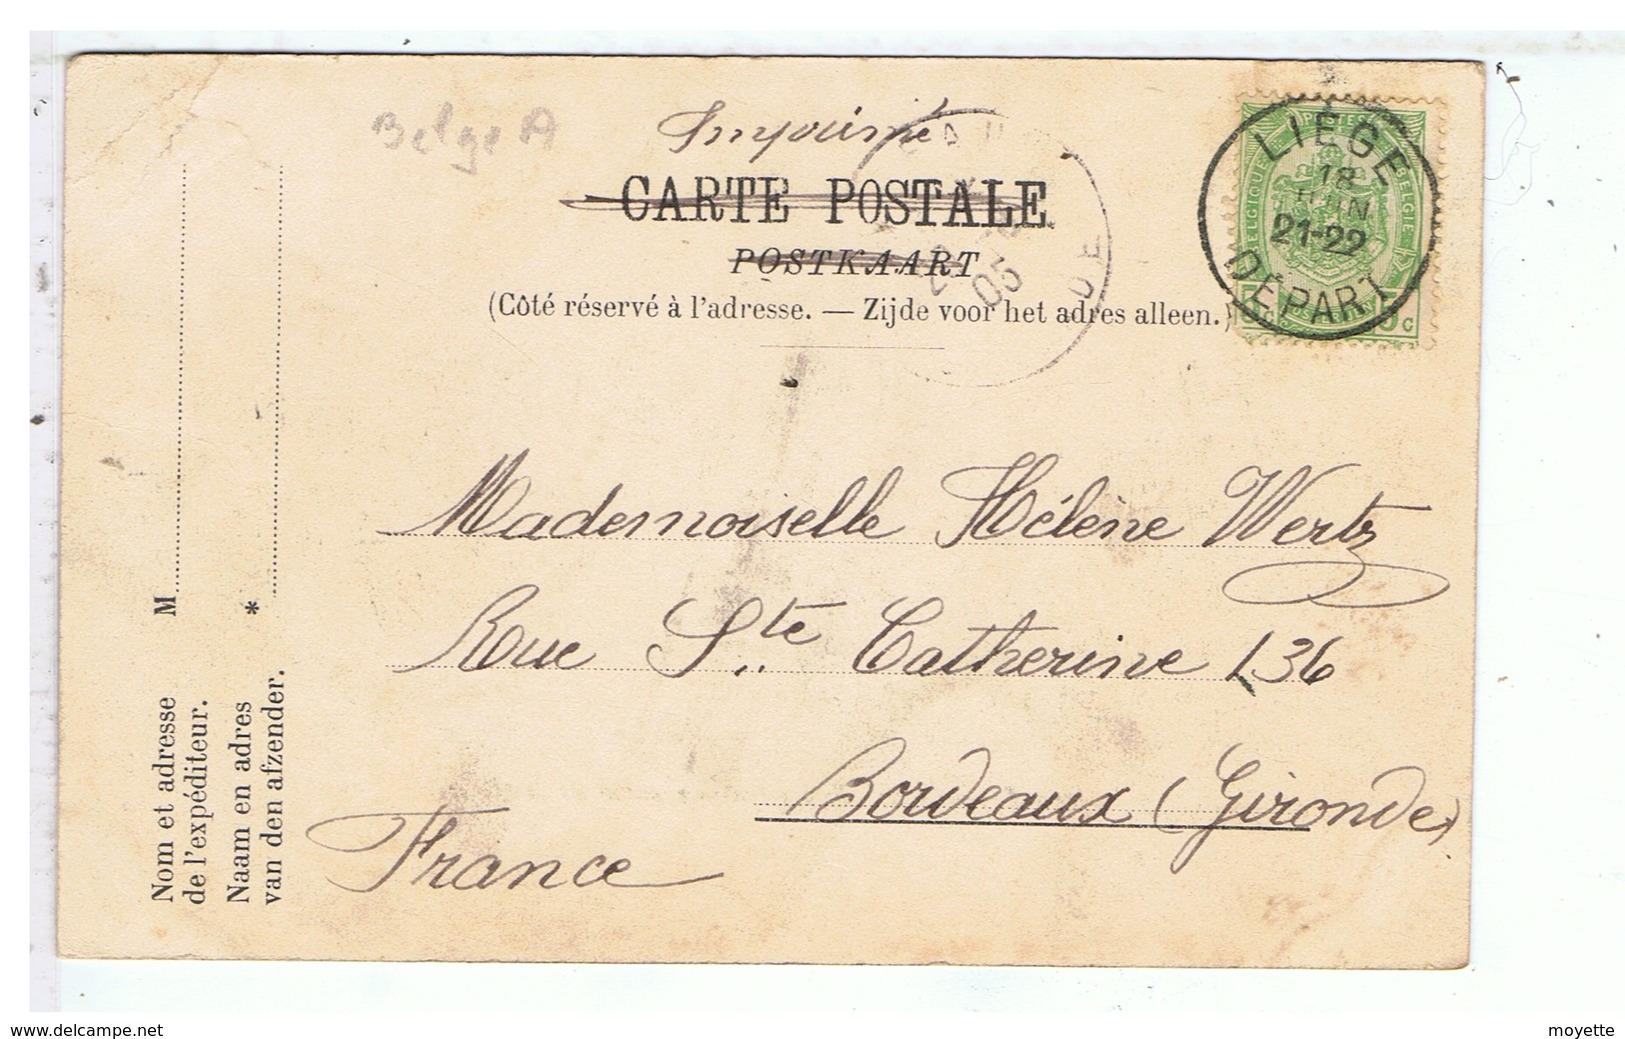 Belge A
Imprimé
CARTE POSTALE
POSTKAART
(Côté réservé à l'adresse. — Zijde voor het adres alleen.)
LIÈGE
18
JUIN
21-22
DÉPART
POSTES
BELGIQUE
BELGIË
05
Mademoiselle Hélène Wertz
Rue Ste Catherine 136
Bordeaux (Gironde)
France
M
*
Nom et adresse
de l'expéditeur.
Naam en adres
van den afzender.
www.delcampe.net
moyette